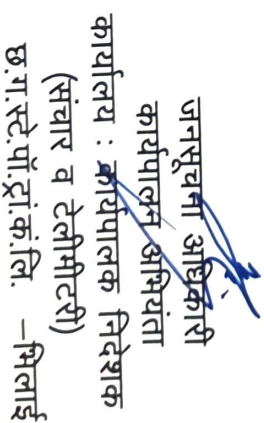 जनसूचना अधिकारी
कार्यपालन अभियंता
कार्यालय : कार्यपालक निदेशक
(संचार व टेलीमीटरी)
छ.ग.स्टे.पॉ.ट्रां.कं.लि. –भिलाई